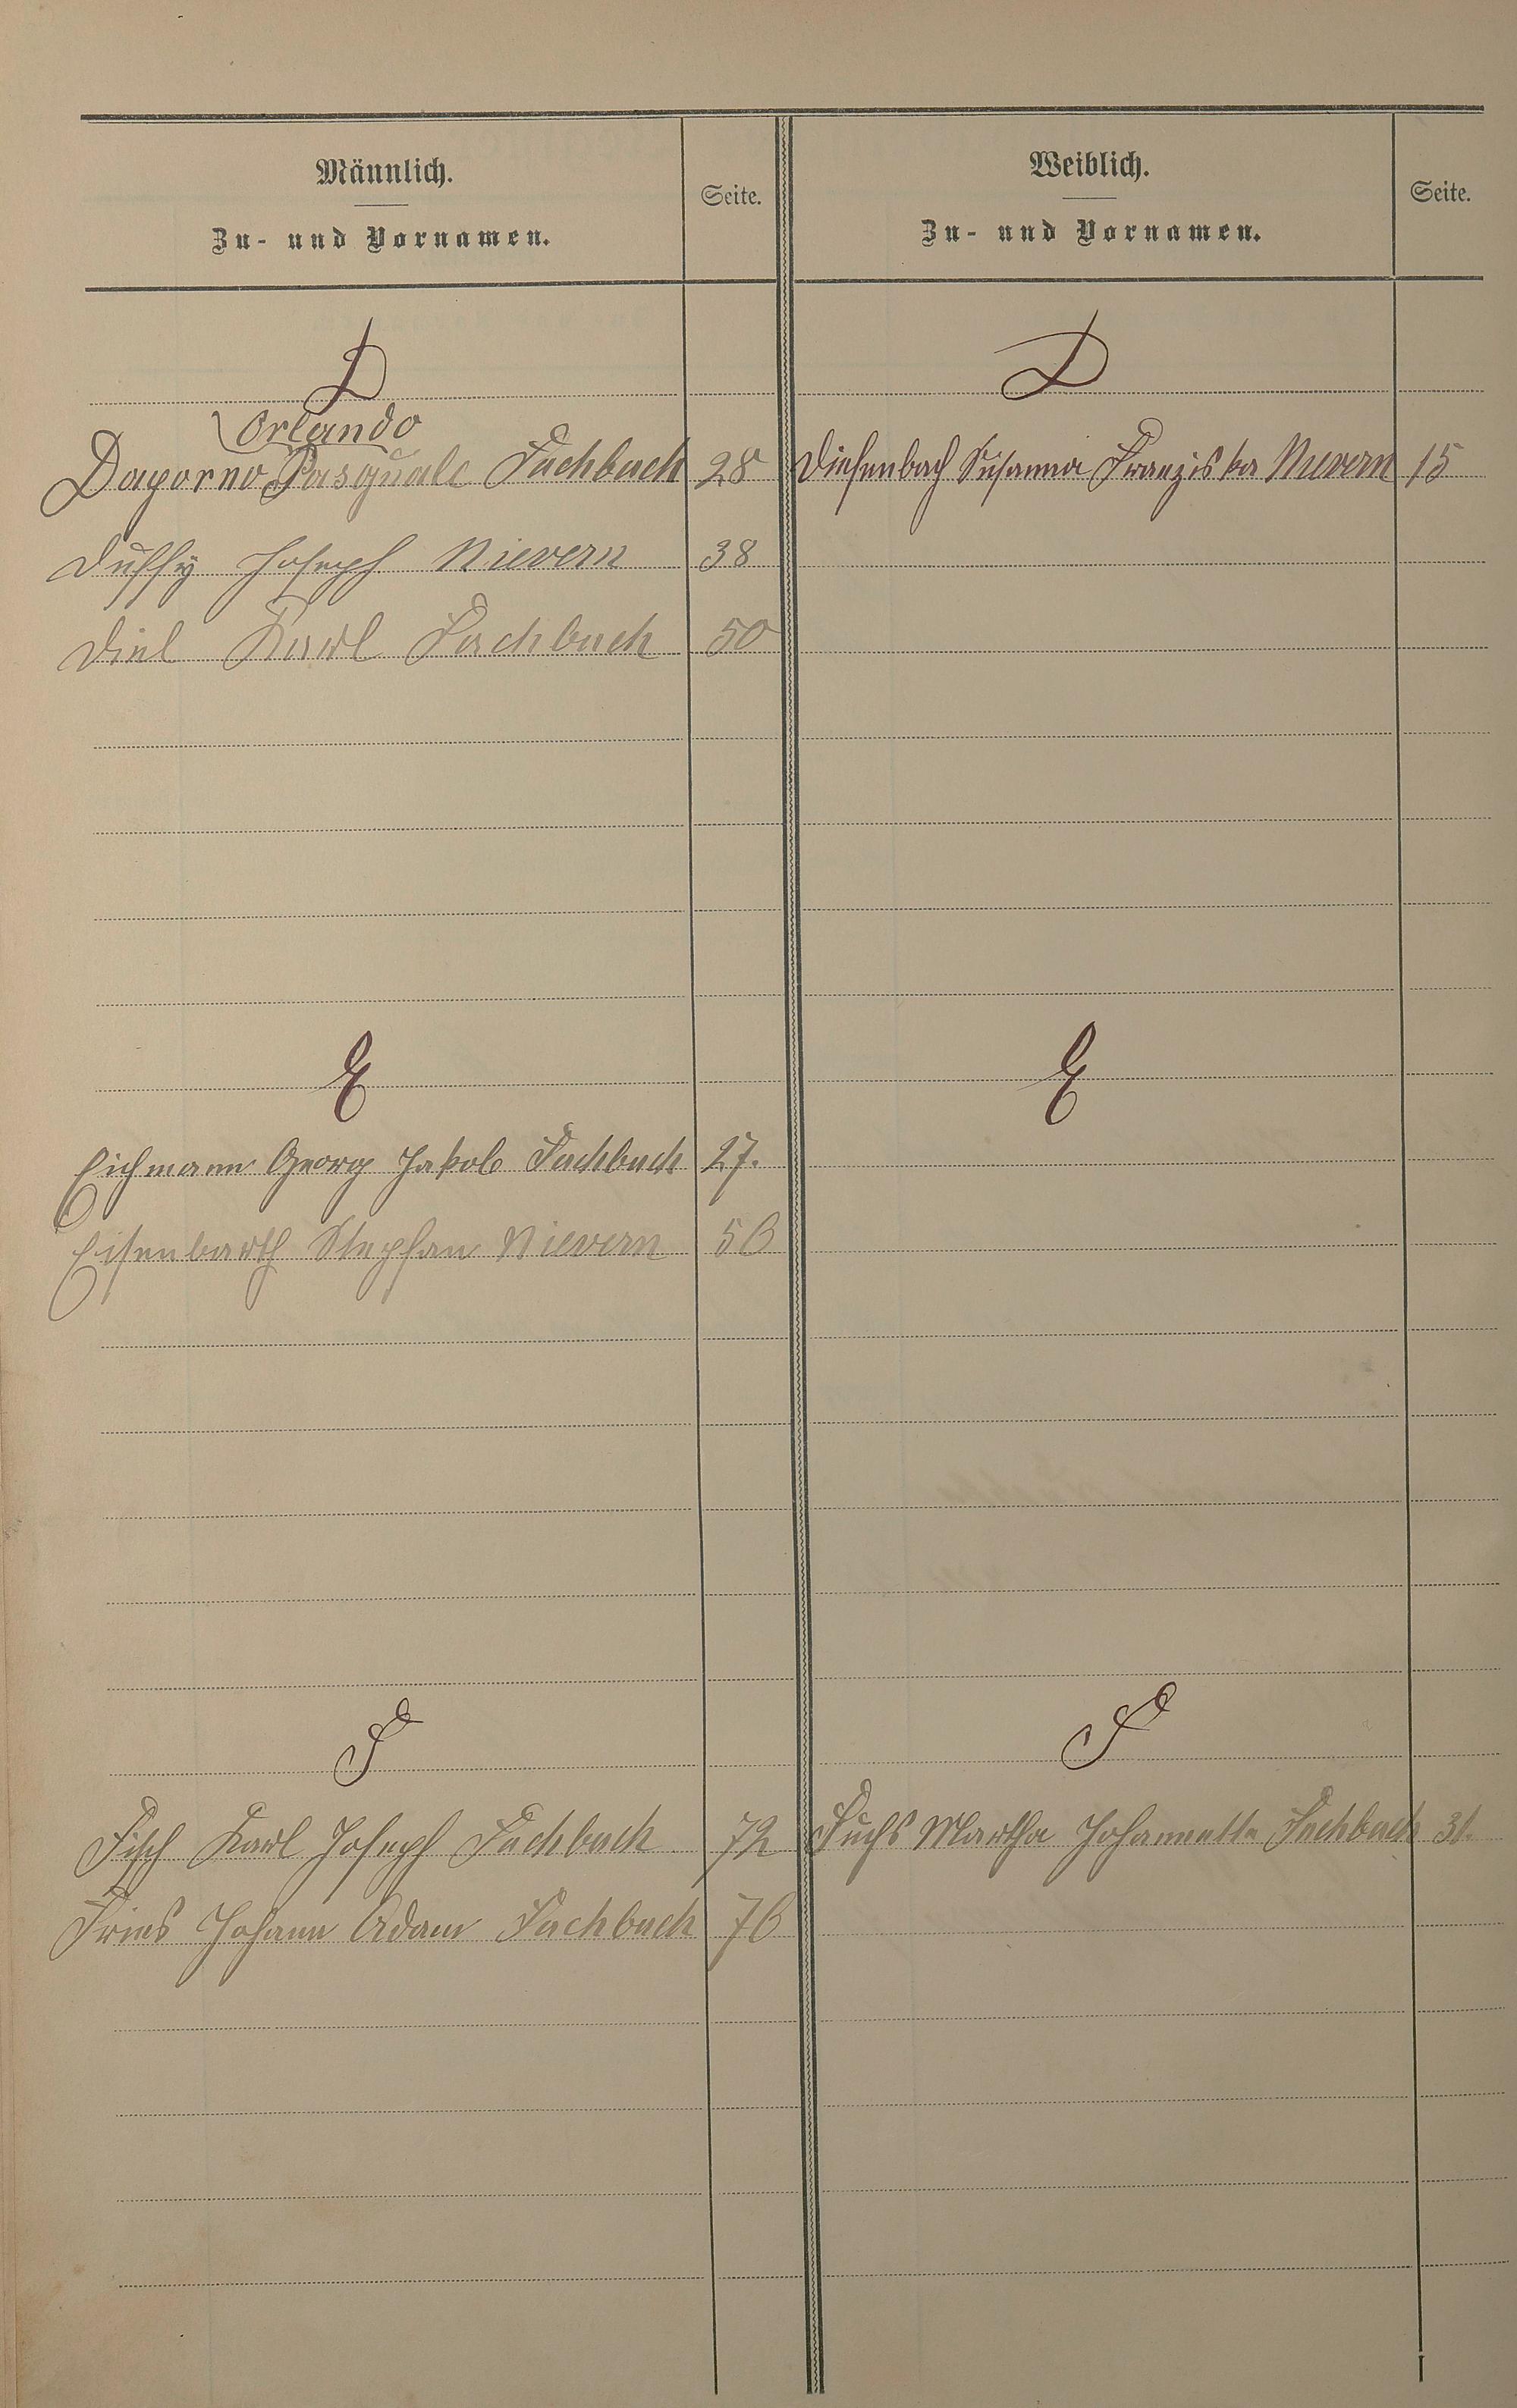 Männlich.
Zu- und Vornamen.
Seite.
D
Orlando
Dagorno Pasquale Fachbach 28
Duffy Joseph Nievern 38
Diel Karl Fachbach 50
E
Eichmann Georg Jakob Fachbach 27.
Eisenbarth Stephan Nievern 56
F
Fisch Karl Joseph Fachbach 72
Fries Johann Adam Fachbach 76
Weiblich.
Zu- und Vornamen.
Seite.
D
Diefenbach Susanna Franziska Nievern 15
E
F
Fuchs Martha Johannette Fachbach 31.